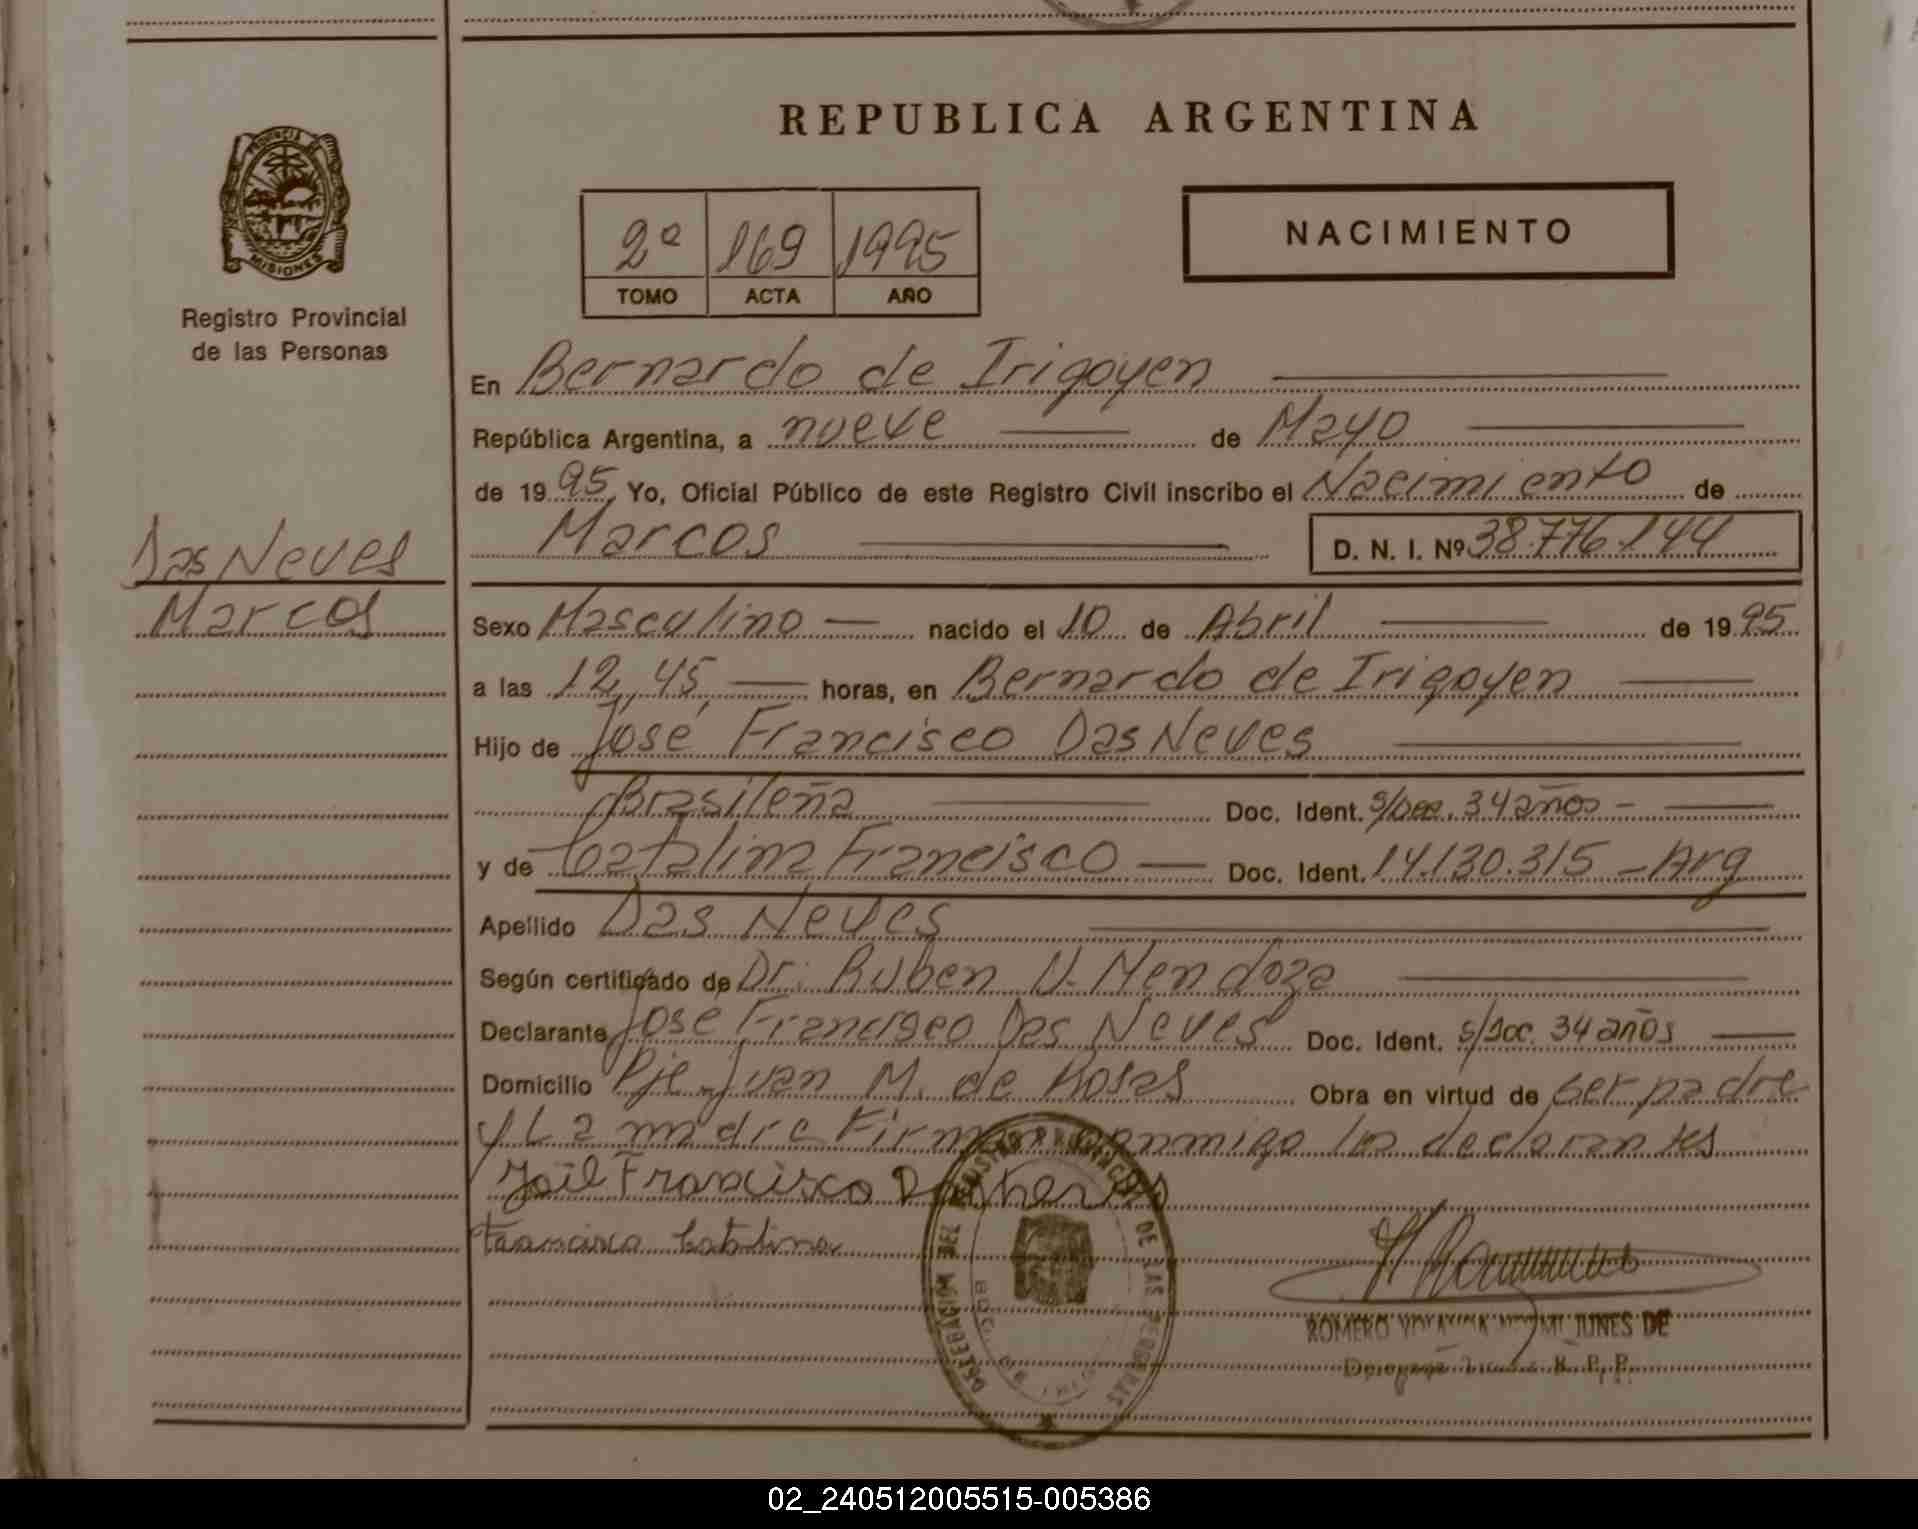 REPUBLICA ARGENTINA
PROVINCIA DE MISIONES
Registro Provincial
de las Personas
2º 169 1995
TOMO ACTA AÑO
NACIMIENTO
En Bernardo de Irigoyen
República Argentina, a nueve de Mayo
de 1995 Yo, Oficial Público de este Registro Civil inscribo el Nacimiento de
Marcos D. N. I. Nº 38.776.144
Das Neves
Marcos
Sexo Masculino nacido el 10 de Abril de 1995
a las 12,45, horas, en Bernardo de Irigoyen
Hijo de José Francisco Das Neves
Brasileña Doc. Ident. s/Doc. 34 años -
y de Catalina Francisco Doc. Ident. 14.130.315 - Arg
Apellido Das Neves
Según certificado de Dr. Ruben N. Mendoza
Declarante José Francisco Das Neves Doc. Ident. s/Doc. 34 años
Domicilio Pje. Juan M. de Rosas Obra en virtud de ser padre
y La madre Firman conmigo los declarantes
Francisco
Francisco Catalina
DELEGACION DEL REGISTRO PROVINCIAL DE LAS PERSONAS
ROMERO JUNES DE
R. P. P.
02_240512005515-005386